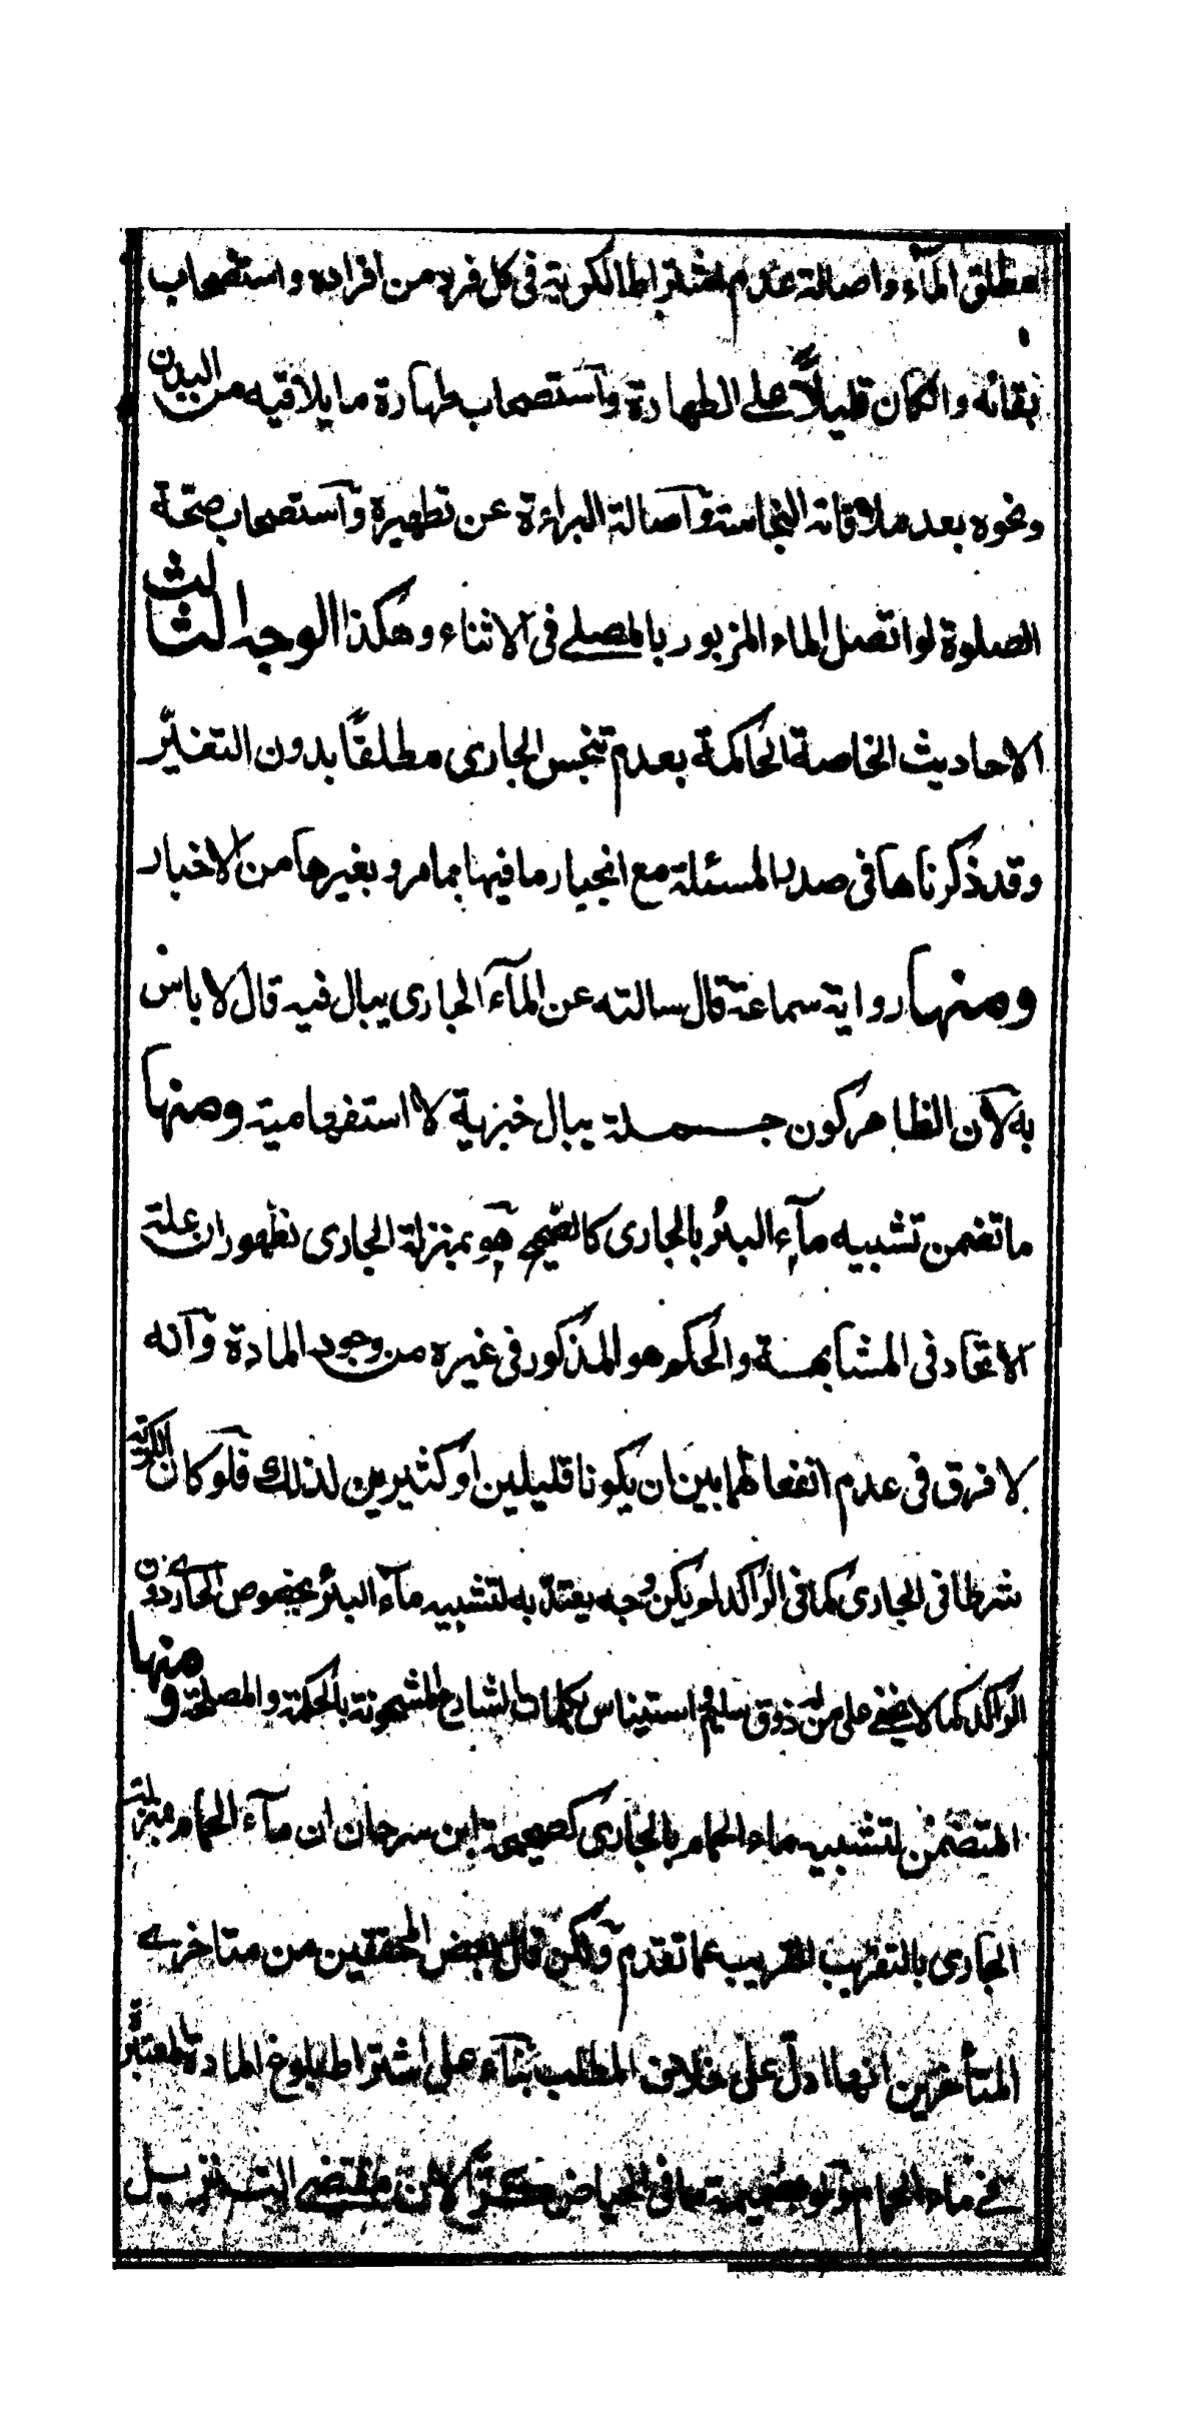 مطلق المآء واصالة عدم اشتراط الكرية فى كل فرد من افراده واستصحاب
بقائه وان كان قليلاً على الطهارة وآستصحاب طهارة ما يلاقيه من البدن
ونحوه بعد ملاقاته النجاسة وآصالة البراءة عن تطهيره وآستصحاب صحة
الصلوة لو اتصل الماء المزبور بالمصلى فى الاثناء وهكذا الوجه الثالث
الاحاديث الخاصة الحاكمة بعدم تنجس الجارى مطلقاً بدون التغيّر
وقد ذكرناها فى صدر المسئلة مع انجبار ما فيها بما مر و بغيرها من الاخبار
ومنها رواية سماعة قال سالته عن المآء الجارى يبال فيه قال لا باس
به لآن الظاهر كون جملة يبال خبرية لا استفهامية ومنها
ما تضمن تشبيه مآء البئر بالجارى كالصّحيح هو بمنزلة الجارى لظهور ان علة
الاتحاد فى المشابهة والحكم هو المذكور فى غيره من وجود المادة وآنه
لا فرق فى عدم انفعالهما بين ان يكونا قليلين او كثيرين لذلك فلو كان الكرية
شرطا فى الجارى كما فى الراكد لم يكن وجه يعتدّ به لتشبيه مآء البئر بخصوص الجارى دون
الراكد كما لا يخفى على من له ذوق سليم استيناس بكلمات الشارع المشحونة بالحكمة والمصلحة ومنها
المتضمن لتشبيه ماء الحمام بالجارى كصحيحة ابن سرحان ان مآء الحمام بمنزلة
الجارى بالتقريب القريب مما تقدم ولكن قال بعض المحققين من متاخرى
المتأخرين انها ادلّ على خلاف المطلب بنآء على اشتراط بلوغ المادة المعتبرة
فى ماء الحمام ولو بضميمة ما فى الحياض كرّا لان مقتضى التنزيل